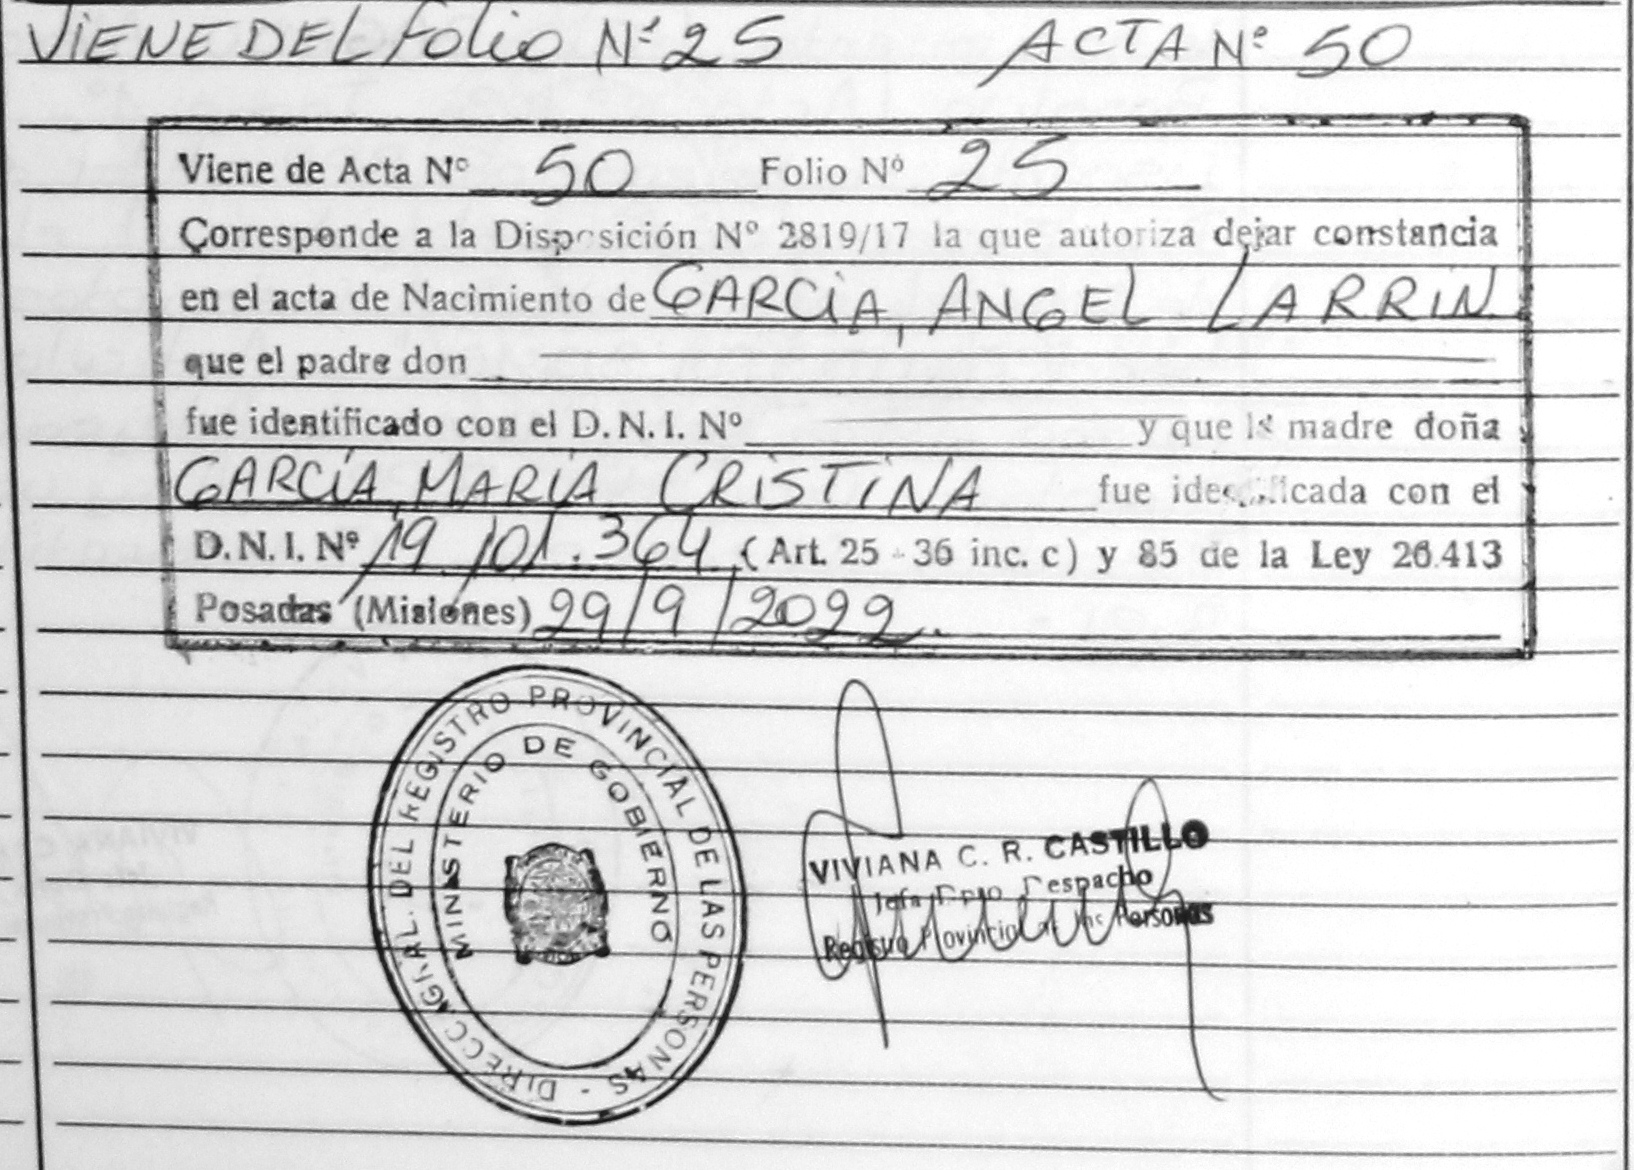 VIENE DEL FOLIO Nº 25 ACTA Nº 50
Viene de Acta Nº 50 Folio Nº 25
Corresponde a la Disposición Nº 2819/17 la que autoriza dejar constancia
en el acta de Nacimiento de GARCÍA, ANGEL LARRIN
que el padre don
fue identificado con el D.N.I. Nº y que la madre doña
GARCÍA, MARÍA CRISTINA fue identificada con el
D.N.I. Nº 19.101.364 (Art. 25 - 36 inc. c) y 85 de la Ley 26.413
Posadas (Misiones) 29/9/2022.
DIRECC. GRAL. DEL REGISTRO PROVINCIAL DE LAS PERSONAS -
MINISTERIO DE GOBIERNO
VIVIANA C. R. CASTILLO
Jefa Dpto Despacho
Registro Provincial de las Personas